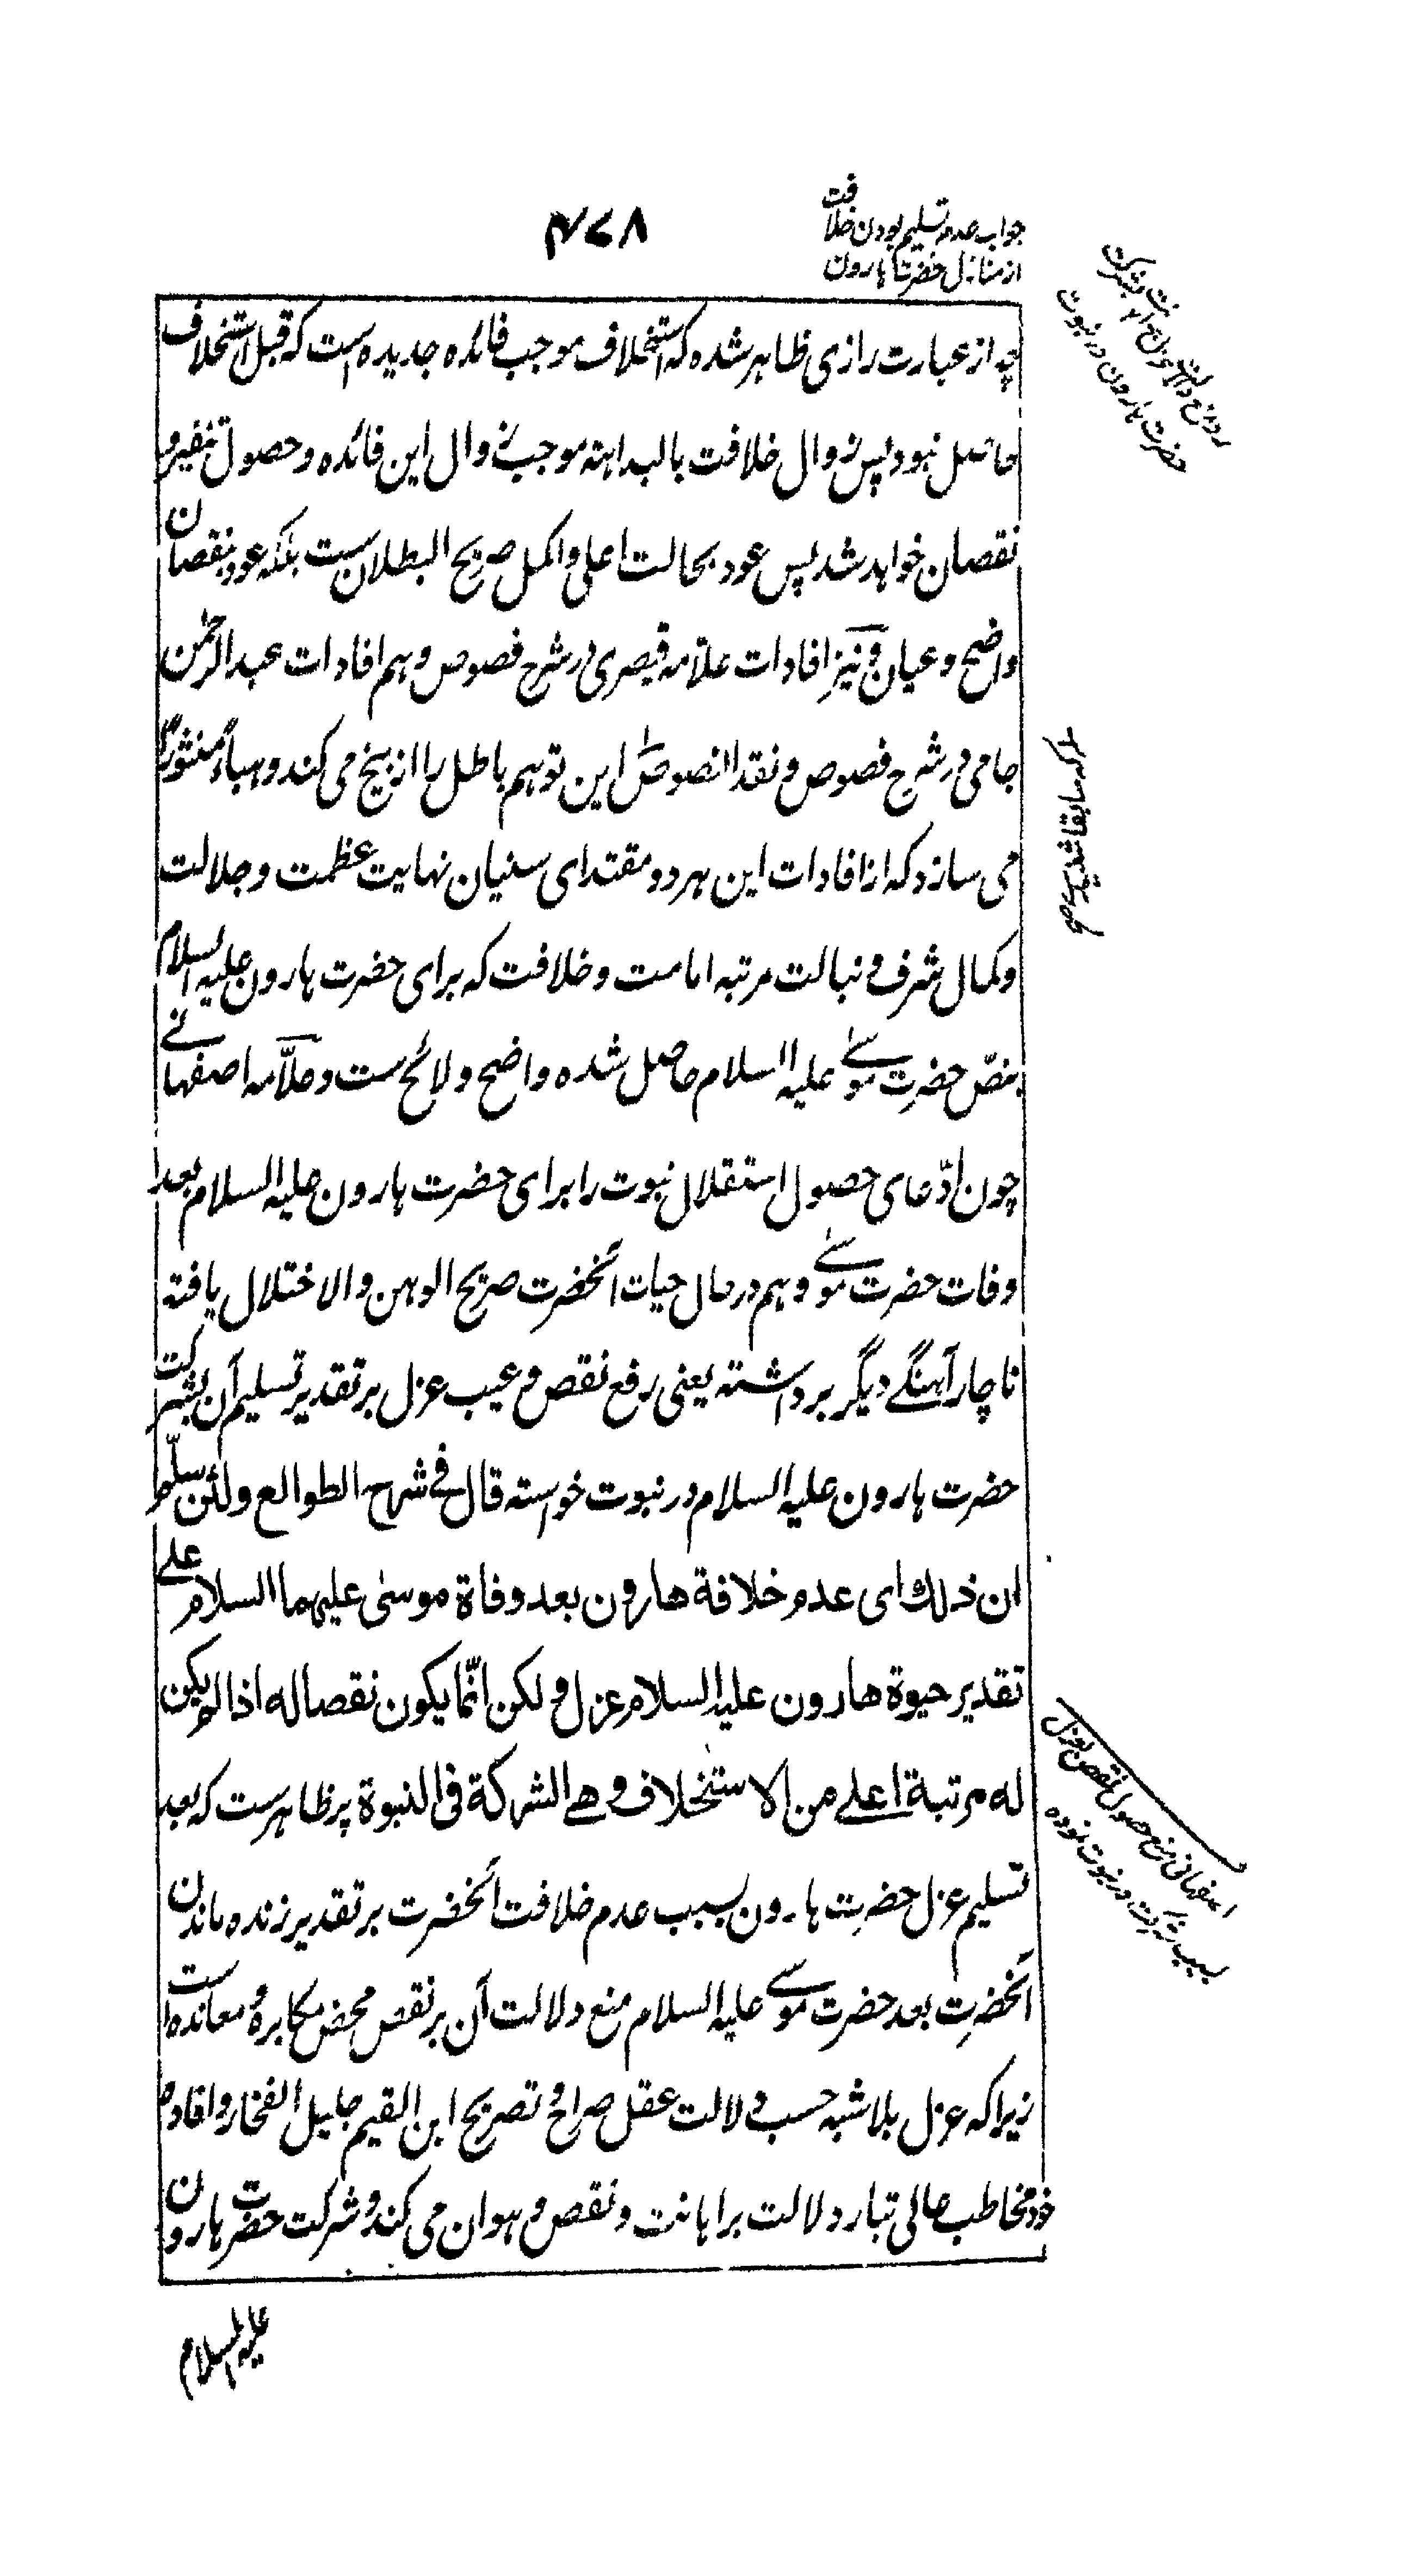 ۴۷۸
جواب عدم تسلیم بودن خلافت
از منازل حضرت هارون
چه از عبارت رازی ظاهر شده که استخلاف موجب فائده جدیده است که قبل استخلاف
حاصل نبود پس زوال خلافت بالبداهته موجب زوال این فائده و حصول تنفیر و
نقصان خواهد شد پس عود بحالت اعلی و اکمل صریح البطلان ست بلکه عود بنقصان
واضح و عیان و نیز افادات علامه قیصری در شرح فصوص و هم افادات عبد الرحمن
جامی در شرح فصوص و نقد النصوص این توهم باطل را از بیخ می کند و هباءً منثورًا
می سازد که از افادات این هر دو مقتدای سنیان نهایت عظمت و جلالت
و کمال شرف و نبالت مرتبه امامت و خلافت که برای حضرت هارون علیه السلام
بنصّ حضرت موسےٰ علیه السلام حاصل شده واضح و لائح ست و علّامه اصفهانے
چون ادّعای حصول استقلال نبوت را برای حضرت هارون علیه السلام بعد
وفات حضرت موسےٰ و هم در حال حیات آنحضرت صریح الوهن والاختلال یافته
ناچار آهنگے دیگر برداشته یعنی رفع نقص و عیب عزل بر تقدیر تسلیم آن بشرکت
حضرت هارون علیه السلام در نبوت خواسته قال فے شرح الطوالع ولئن سلّم
ان ذلك ای عدم خلافة هارون بعد وفاة موسیٰ علیهما السلام علے
تقدیر حیوة هارون علیه السلام عزل و لكن انّما یكون نقصا له اذا لم یكن
له مرتبة اعلے من الاستخلاف وهے الشركة فی النبوة پر ظاهر ست که بعد
تسلیم عزل حضرت هارون بسبب عدم خلافت آنحضرت بر تقدیر زنده ماندن
آنحضرت بعد حضرت موسےٰ علیه السلام منع دلالت آن بر نقص محض مکابره و معانده است
زیرا که عزل بلا شبه حسب دلالت عقل صراح و تصریح ابن القیم جلیل الفخار و افاده
خود مخاطب عالی تبار دلالت بر اهانت و نقص و هوان می کند و شرکت حضرت هارون
اصفهانی منع حصول نقص بعزل
بسبب شرکت در نبوت نموده
علیه السلام